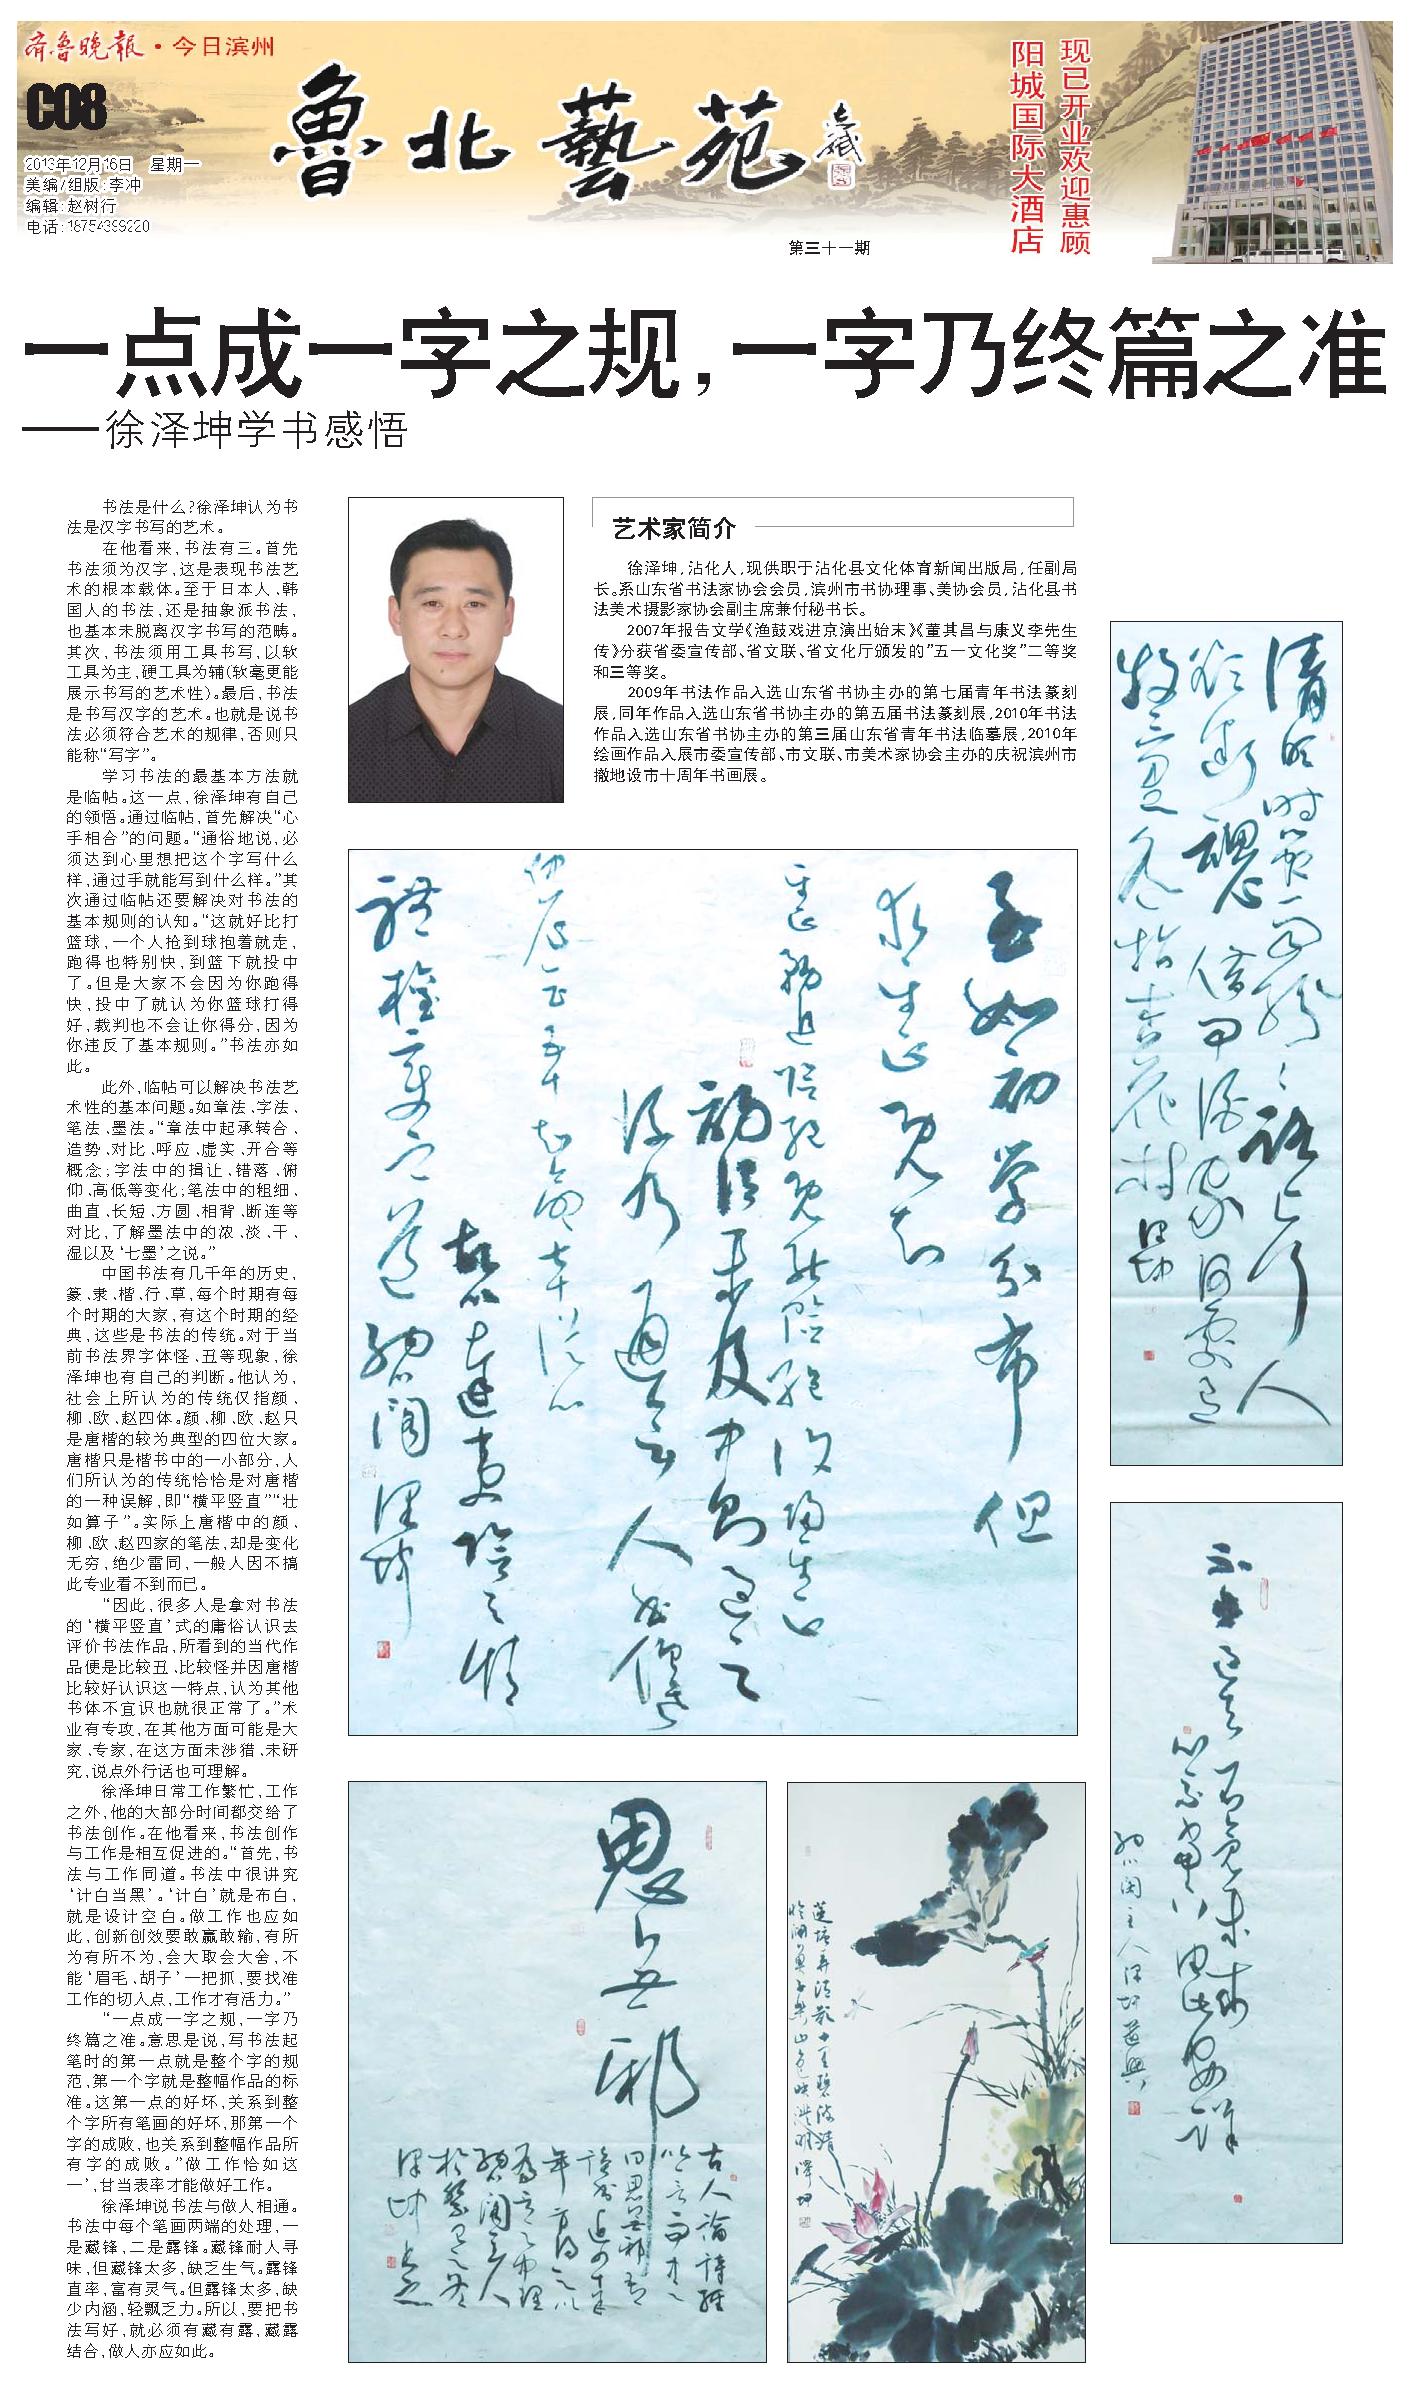 齐鲁晚报·今日滨州
C08
2013年12月16日 星期一
美编/组版:李冲
编辑:赵树行
电话:18754399220
魯北藝苑
第三十一期
现已开业欢迎惠顾
阳城国际大酒店
一点成一字之规,一字乃终篇之准
——徐泽坤学书感悟
书法是什么?徐泽坤认为书
法是汉字书写的艺术。
在他看来,书法有三。首先
书法须为汉字,这是表现书法艺
术的根本载体。至于日本人、韩
国人的书法,还是抽象派书法,
也基本未脱离汉字书写的范畴。
其次,书法须用工具书写,以软
工具为主,硬工具为辅(软毫更能
展示书写的艺术性)。最后,书法
是书写汉字的艺术。也就是说书
法必须符合艺术的规律,否则只
能称“写字”。
学习书法的最基本方法就
是临帖。这一点,徐泽坤有自己
的领悟。通过临帖,首先解决“心
手相合”的问题。“通俗地说,必
须达到心里想把这个字写什么
样,通过手就能写到什么样。”其
次通过临帖还要解决对书法的
基本规则的认知。“这就好比打
篮球,一个人抢到球抱着就走,
跑得也特别快,到篮下就投中
了。但是大家不会因为你跑得
快,投中了就认为你篮球打得
好,裁判也不会让你得分,因为
你违反了基本规则。”书法亦如
此。
此外,临帖可以解决书法艺
术性的基本问题。如章法、字法、
笔法、墨法。“章法中起承转合、
造势、对比、呼应、虚实、开合等
概念;字法中的揖让、错落、俯
仰、高低等变化;笔法中的粗细、
曲直、长短、方圆、相背、断连等
对比,了解墨法中的浓、淡、干、
湿以及‘七墨’之说。”
中国书法有几千年的历史,
篆、隶、楷、行、草,每个时期有每
个时期的大家,有这个时期的经
典,这些是书法的传统。对于当
前书法界字体怪、丑等现象,徐
泽坤也有自己的判断。他认为,
社会上所认为的传统仅指颜、
柳、欧、赵四体。颜、柳、欧、赵只
是唐楷的较为典型的四位大家。
唐楷只是楷书中的一小部分,人
们所认为的传统恰恰是对唐楷
的一种误解,即“横平竖直”“壮
如算子”。实际上唐楷中的颜、
柳、欧、赵四家的笔法,却是变化
无穷,绝少雷同,一般人因不搞
此专业看不到而已。
“因此,很多人是拿对书法
的‘横平竖直’式的庸俗认识去
评价书法作品,所看到的当代作
品便是比较丑、比较怪并因唐楷
比较好认识这一特点,认为其他
书体不宜识也就很正常了。”术
业有专攻,在其他方面可能是大
家、专家,在这方面未涉猎、未研
究,说点外行话也可理解。
徐泽坤日常工作繁忙,工作
之外,他的大部分时间都交给了
书法创作。在他看来,书法创作
与工作是相互促进的。“首先,书
法与工作同道。书法中很讲究
‘计白当黑’。‘计白’就是布白,
就是设计空白。做工作也应如
此,创新创效要敢赢敢输,有所
为有所不为,会大取会大舍,不
能‘眉毛、胡子’一把抓,要找准
工作的切入点,工作才有活力。”
“一点成一字之规,一字乃
终篇之准。意思是说,写书法起
笔时的第一点就是整个字的规
范,第一个字就是整幅作品的标
准。这第一点的好坏,关系到整
个字所有笔画的好坏,那第一个
字的成败,也关系到整幅作品所
有字的成败。”做工作恰如这
一’,甘当表率才能做好工作。
徐泽坤说书法与做人相通。
书法中每个笔画两端的处理,一
是藏锋,二是露锋。藏锋耐人寻
味,但藏锋太多,缺乏生气。露锋
直率,富有灵气。但露锋太多,缺
少内涵,轻飘乏力。所以,要把书
法写好,就必须有藏有露,藏露
结合,做人亦应如此。
艺术家简介
徐泽坤,沾化人,现供职于沾化县文化体育新闻出版局,任副局
长。系山东省书法家协会会员,滨州市书协理事、美协会员,沾化县书
法美术摄影家协会副主席兼付秘书长。
2007年报告文学《渔鼓戏进京演出始末》《董其昌与康义李先生
传》分获省委宣传部、省文联、省文化厅颁发的”五一文化奖”二等奖
和三等奖。
2009年书法作品入选山东省书协主办的第七届青年书法篆刻
展,同年作品入选山东省书协主办的第五届书法篆刻展,2010年书法
作品入选山东省书协主办的第三届山东省青年书法临摹展,2010年
绘画作品入展市委宣传部、市文联、市美术家协会主办的庆祝滨州市
撤地设市十周年书画展。
至如初学分布但
求平正既知
平正务追险绝既能险绝复归平正
初谓未及中则过之
后乃通会人书俱老
仲尼云五十知命七十从心
故以达夷险之情
体权变之道
清明时节雨纷纷路上行人
欲断魂借问酒家何处有
牧童遥指杏花村
思无邪